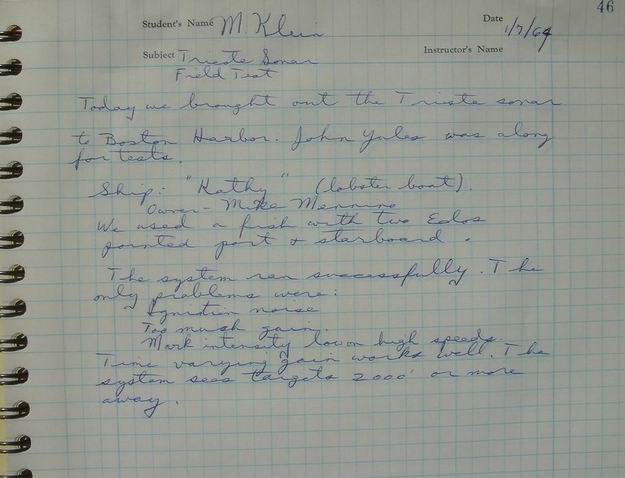 46
Student's Name M. Klein Date 1/7/64
Subject Trieste Sonar Instructor's Name
Field Test
Today we brought out the Trieste sonar
to Boston Harbor. John Yules was along
for tests.
Ship: "Kathy" (lobster boat).
Owner - Mike Mennino
We used a fish with two Edos
pointed port + starboard.
The system ran successfully. The
only problems were:
Ignition noise
Too much gain.
Mark intensity low on high speeds.
Time varying gain works well. The
system sees targets 2000' or more
away.